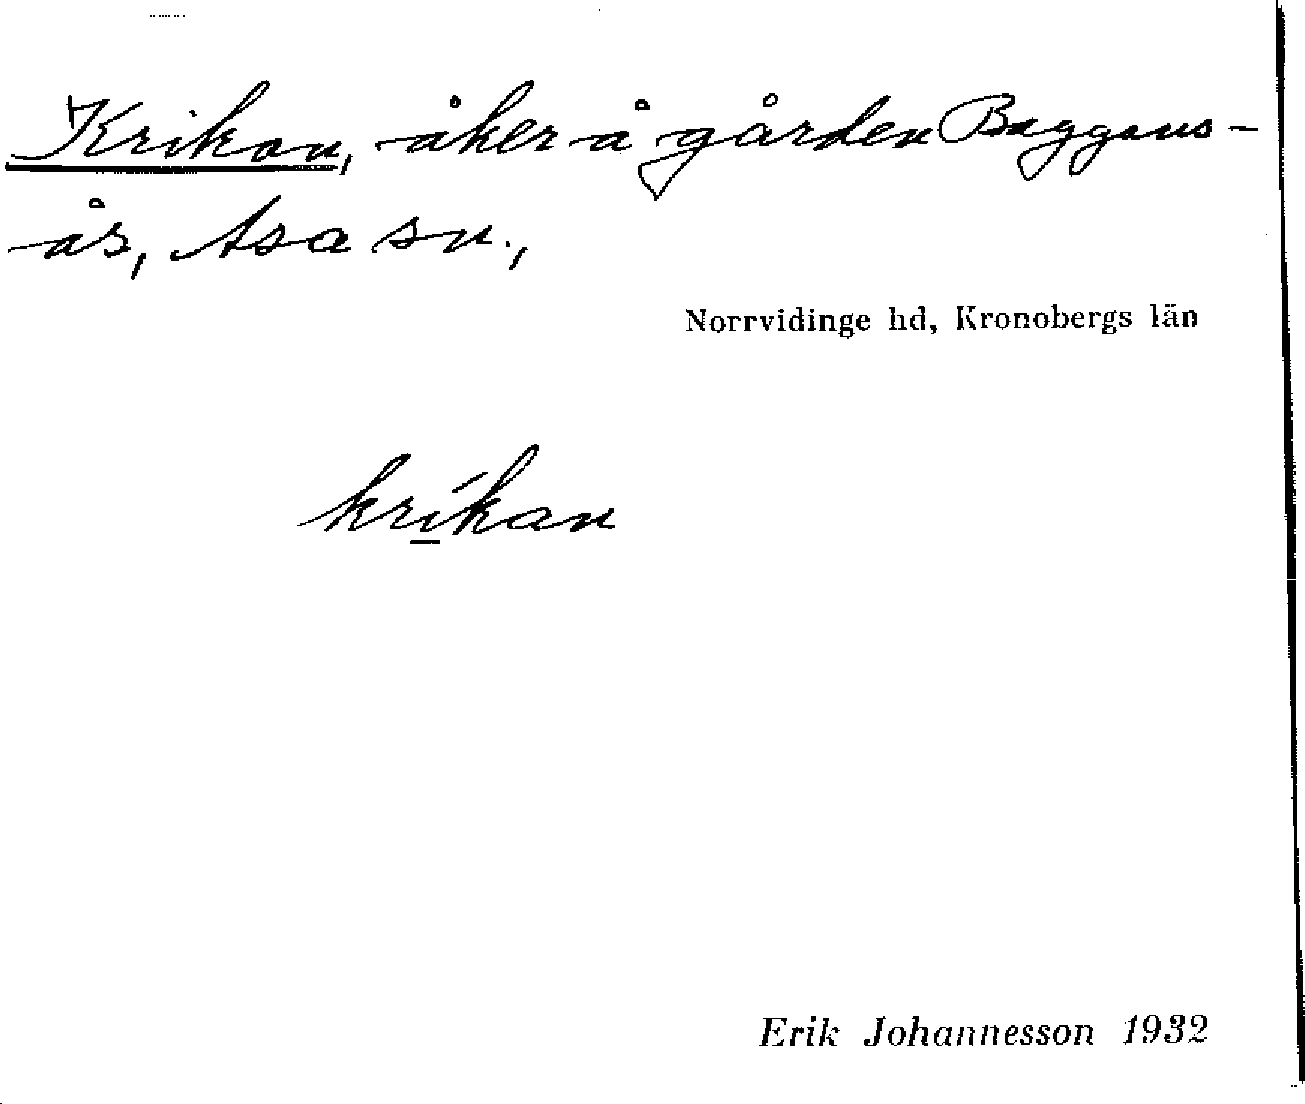 Krikon, åker å gården Baggans-
ås, Asa sn.,
Norrvidinge hd, Kronobergs län
kríkan
Erik Johannesson 1932